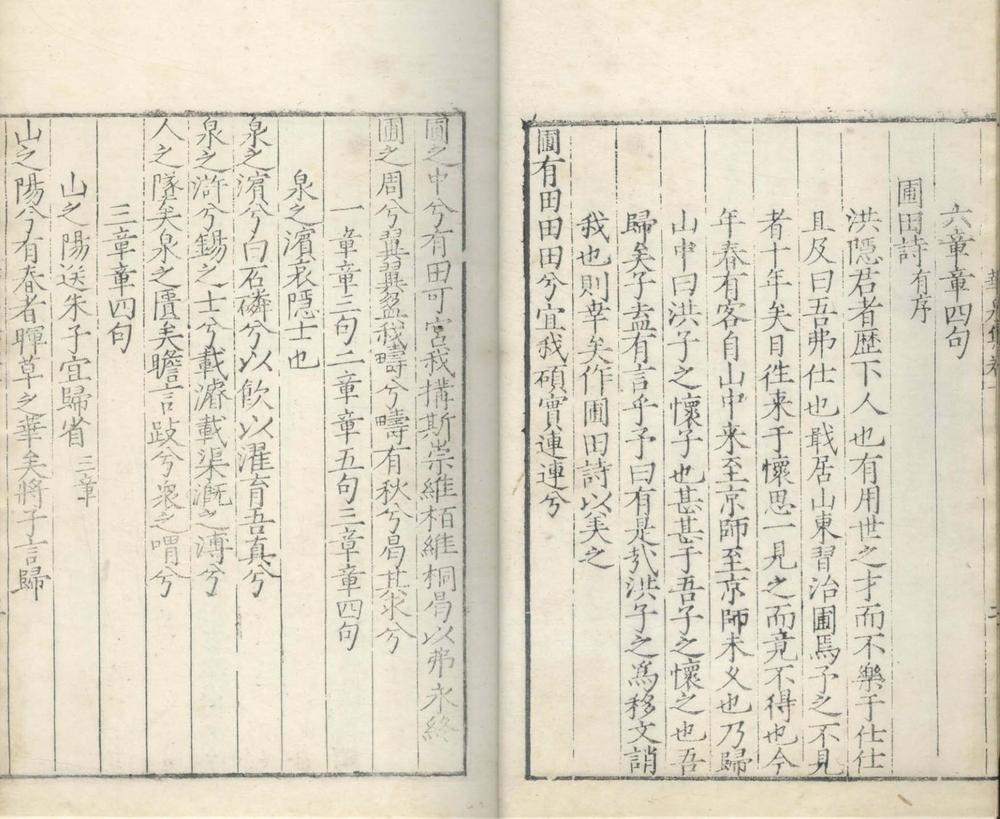 華泉集卷一
六章章四句
圃田詩有序
洪隱君者歷下人也有用世之才而不樂于仕仕
且及曰吾弗仕也戢居山東習治圃焉予之不見
者十年矣目徃来于懷思一見之而竟不得也今
年春有客自山中来至京師至京師未乆也乃歸
山中曰洪子之懷子也甚甚于吾子之懷之也吾
歸矣子盍有言乎予曰有是㢤洪子之為移文誚
我也則幸矣作圃田詩以美之
圃有田田田兮宜我碩實連連兮
圃之中兮有田可宮我搆斯崇維栢維桐曷以弗永終
圃之周兮翼翼盈我疇兮疇有秋兮曷其求兮
一章章三句二章章五句三章章四句
泉之濵哀隱士也
泉之濵兮白石磷兮以飲以濯育吾真兮
泉之滸兮錫之士兮載濬載渠漑之溥兮
人之隧矣泉之匱矣瞻言跂兮衆之喟兮
三章章四句
山之陽送朱子宜歸省三章
山之陽兮有春者暉草之華矣將子言歸